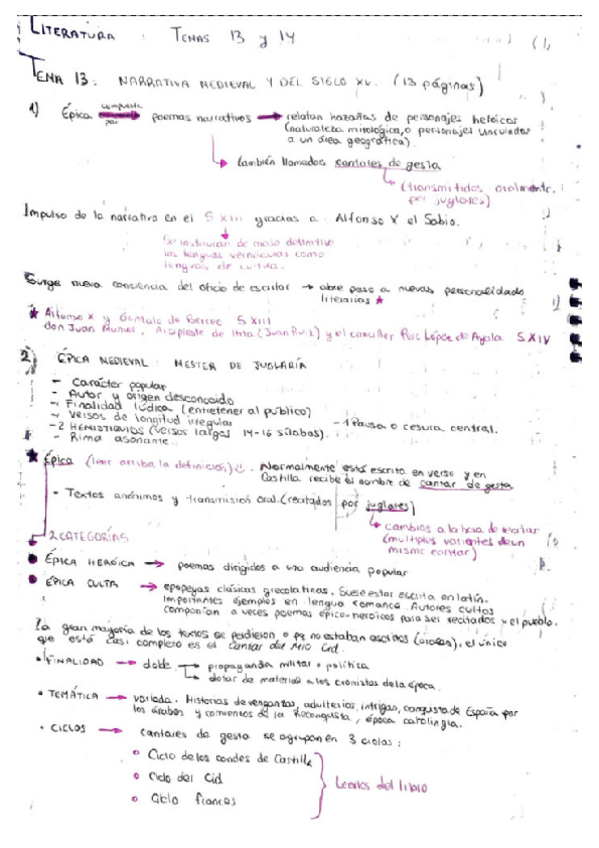 LITERATURA : TEMAS 13 y 14
TEMA 13: NARRATIVA MEDIEVAL Y DEL SIGLO XV. (13 páginas)
1) Épica compuesta por → poemas narrativos → relatan hazañas de personajes heroicos
(naturaleza mitológica, o personajes vinculados
a un área geográfica)
también llamados cantales de gesta
(transmitidos oralmente.
por juglares)
Impulso de la narrativa en el S XIII gracias a Alfonso X el Sabio.
Se instauran de modo definitivo
las lenguas vernáculas como
lenguas de cultura.
Surge nueva conciencia del oficio de escritor → abre paso a nuevas personalidades
literarias ★
★ Alfonso X y Gonzalo de Berceo S XIII
don Juan Manuel, Arcipreste de Hita (Juan Ruiz) y el canciller Pero López de Ayala S.XIV
2) ÉPICA MEDIEVAL: MESTER DE JUGLARÍA
- Carácter popular
- Autor y origen desconocido
- Finalidad lúdica (entretener al público)
- Versos de longitud irregular
- 2 HEMISTIQUIOS (versos largos 14-16 sílabas). - 1 Pausa o cesura central.
- Rima asonante.
★ Épica (leer arriba la definición). Normalmente está escrito en verso y en
Castilla recibe el nombre de cantar de gesta
- Textos anónimos y transmisión oral. (recitados por juglares)
cambios a la hora de recitar
(multiples variantes de un
mismo cantar)
2 CATEGORÍAS
• ÉPICA HEROICA → poemas dirigidos a una audiencia popular
• ÉPICA CULTA → epopeyas clásicas grecolatinas. Suele estar escrita en latín.
Importantes ejemplos en lengua romance. Autores cultos
componían a veces poemas épico-heroicos para ser recitados x el pueblo.
La gran mayoría de los textos se perdieron o pq no estaban escritos (orales), el único
que está casi completo es el Cantar del Mio Cid.
• FINALIDAD → doble → propaganda militar o política
→ dotar de material a los cronistas de la época.
• TEMÁTICA → variada. Historias de venganzas, adulterios, intrigas, conquista de España por
los árabes y comienzos de la Reconquista, época carolingia.
• CICLOS → cantares de gesta se agrupan en 3 ciclos:
• Ciclo de los condes de Castilla
• Ciclo del Cid
• Ciclo francés
Leerlos del libro